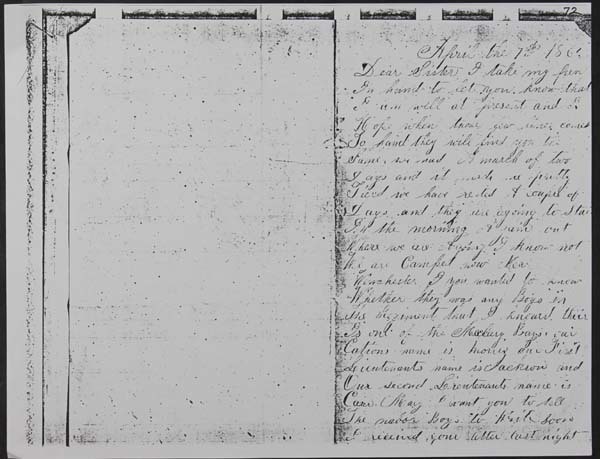 72
April the 7th 186
Dear Sister I take my pen
In hand to let you know that
I am well at present and I
Hope when these few lines comes
To hand they will find you the
Same we had A march of two
Days and it made us pretty
Tired we have rested A couple of
Days and they are agoing to start
In the morning Again but
Where we are Agoing I know not
We are Camped now Near
Winchester I you wanted to know
Whether they was any Boys in
the Regiment that I knowed their
Is one of the Boys our
Captions name is Morris our First
Lieutenants name is Jackson and
Our second Lieutenants name is
Cane Mary I want you to tell
The Boys to Write soon
I received your letter last night